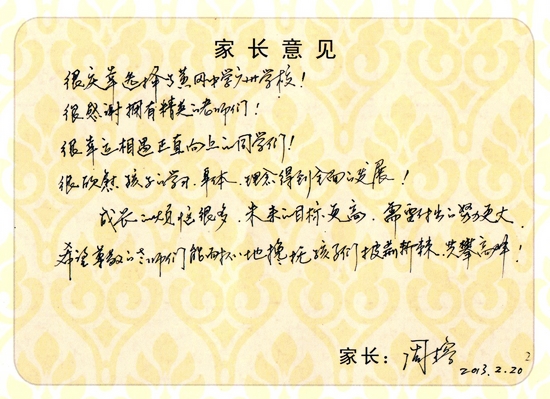 家长意见
很庆幸选择了黄冈中学广州学校！
很感谢拥有精英的老师们！
很幸运相遇正直向上的同学们！
很欣慰孩子的学习、身体、理念得到全面的发展！
成长的烦恼很多，未来的目标更高，需要付出的努力更大，
希望尊敬的老师们能耐心地搀扶孩子们披荆斩棘，共攀高峰！
家长：周
2013.2.20
2